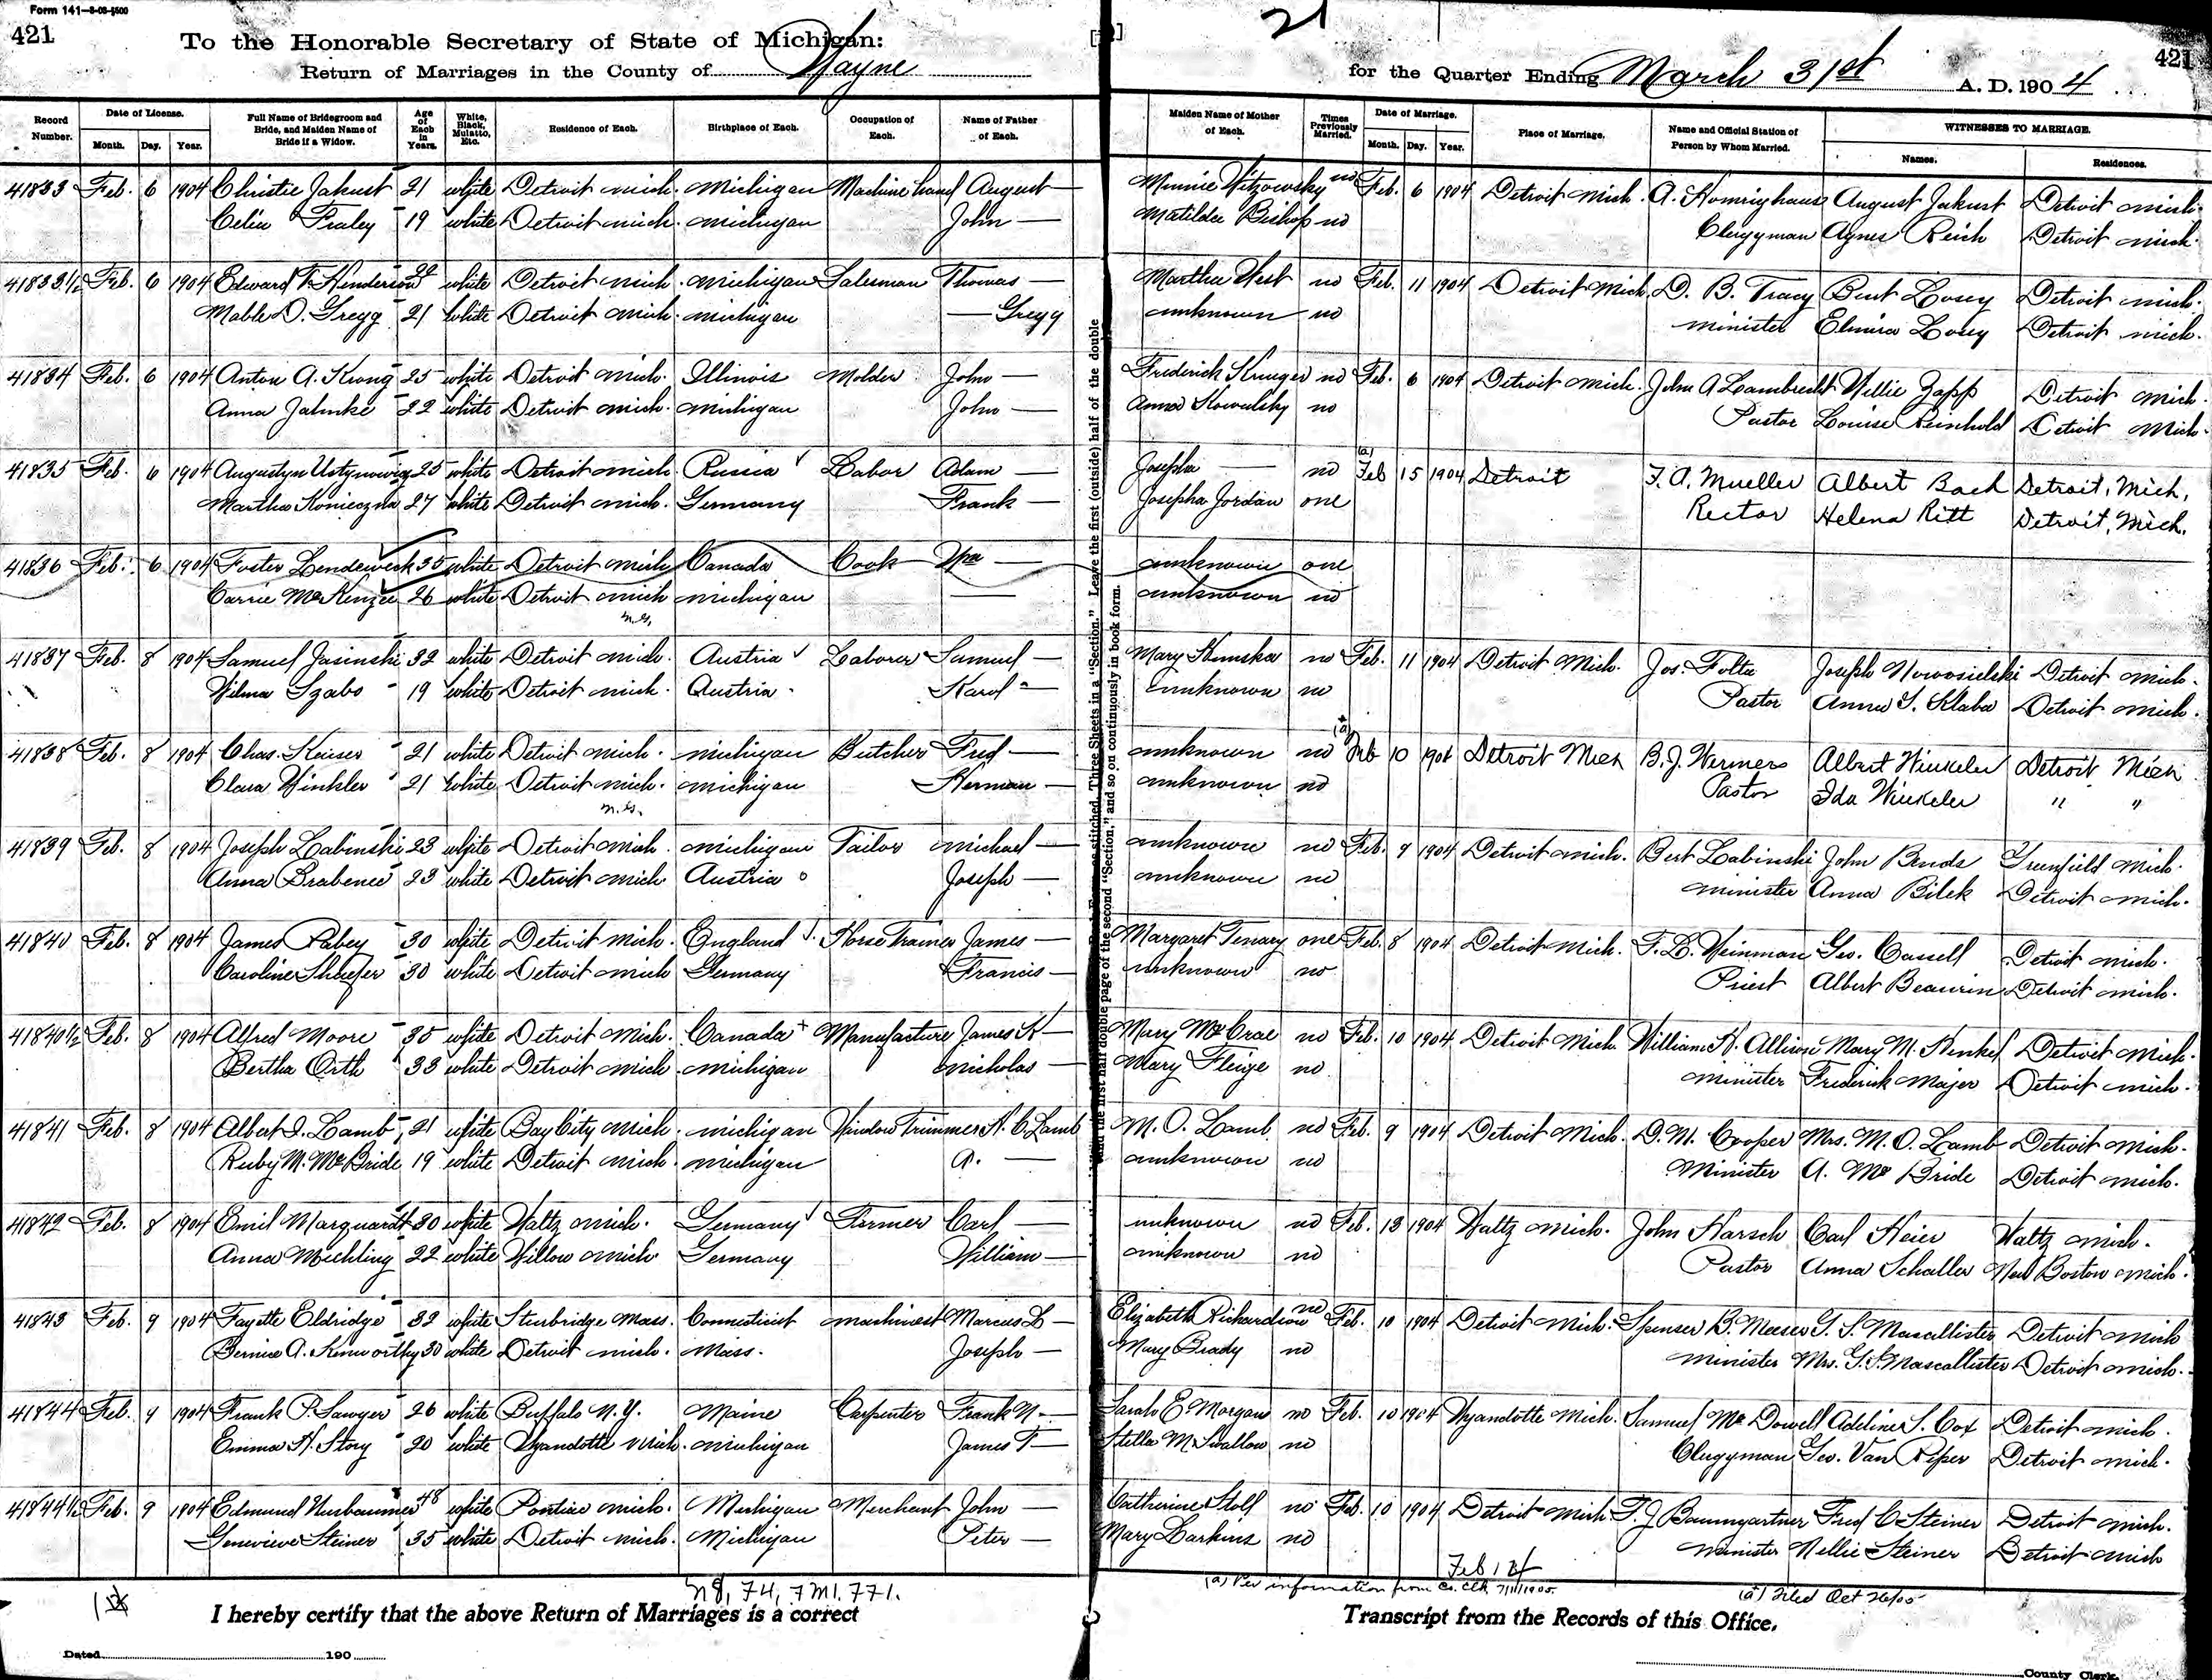 Form 141—8-03-1500
421
To the Honorable Secretary of State of Michigan:
Return of Marriages in the County of Wayne
21
for the Quarter Ending March 31st A. D. 1904
421
Record Number. Date of License. Month. Day. Year. Full Name of Bridegroom and Bride, and Maiden Name of Bride if a Widow. Age of Each in Years. White, Black, Mulatto, Etc. Residence of Each. Birthplace of Each. Occupation of Each. Name of Father of Each. Maiden Name of Mother of Each. Times Previously Married. Date of Marriage. Month. Day. Year. Place of Marriage. Name and Official Station of Person by Whom Married. WITNESSES TO MARRIAGE. Names. Residences.
41833 Feb. 6 1904 Christie Jakust 21 white Detroit mich. michigan Machine hand August — Minnie Witzowsky no Feb. 6 1904 Detroit Mich. A. Homrighaus August Jakust Detroit mich.
Celia Fraley 19 white Detroit mich. michigan John — Matilda Bishop no Clergyman Agnes Reich Detroit mich.
41833½ Feb. 6 1904 Edward F. Henderson 24 white Detroit mich. michigan Salesman Thomas — Martha West no Feb. 11 1904 Detroit Mich. D. B. Tracy Burt Losey Detroit mich.
Mable D. Gregg 21 white Detroit mich. michigan — Gregg unknown no minister Elmira Losey Detroit mich.
41834 Feb. 6 1904 Anton A. Krong 25 white Detroit mich. Illinois Molder John — Frederick Krueger no Feb. 6 1904 Detroit mich. John A Lambrecht Willie Zapp Detroit mich.
Anna Jahnke 22 white Detroit mich. michigan John — Anna Kowalsky no Pastor Louise Reinhold Detroit Mich.
41835 Feb. 6 1904 Augustyn Ustynowicz 25 white Detroit mich. Russia Labor Adam — Josepha — no (a) Feb 15 1904 Detroit F. A. Mueller Albert Bach Detroit, Mich,
Martha Konieczna 27 white Detroit mich. Germany Frank — Josepha Jordan one Rector Helena Ritt Detroit, Mich.
41836 Feb. 6 1904 Foster Lendewesk 35 white Detroit mich Canada Cook — unknown one
Carrie McKenzie 26 white Detroit mich michigan — unknown no
41837 Feb. 8 1904 Samuel Jasinski 32 white Detroit mich. Austria Laborer Samuel — Mary no Feb. 11 1904 Detroit Mich. Jos. Folta Joseph Nowosielski Detroit mich.
Wilma Szabo 19 white Detroit mich. Austria Karol — unknown no Pastor Anna S. Klaba Detroit mich.
41838 Feb. 8 1904 Chas. Keiser 21 white Detroit mich. michigan Butcher Fred — unknown no (a) Feb 10 1904 Detroit Mich B. J. Wermers Albert Winkeler Detroit Mich
Clara Winkler 21 white Detroit mich. michigan Herman — unknown no Pastor Ida Winkeler " "
41839 Feb. 8 1904 Joseph Labinski 23 white Detroit mich. michigan Tailor michael — unknown no Feb. 9 1904 Detroit mich. Bert Labinski John Benda Greenfield Mich.
Anna Brabenec 23 white Detroit mich. Austria Joseph — unknown no minister Anna Bilek Detroit mich.
41840 Feb. 8 1904 James Pabey 30 white Detroit mich. England Horse Trainer James — Margaret Tenary one Feb. 8 1904 Detroit Mich. F. L. Weinman Geo. Cassell Detroit mich.
Caroline Shaefer 30 white Detroit mich Germany Francis — unknown no Priest Albert Beaurin Detroit mich.
41840½ Feb. 8 1904 Alfred Moore 35 white Detroit Mich. Canada Manufacture James H — Mary McCrae no Feb. 10 1904 Detroit Mich. William H. Allison Mary M. Henkel Detroit mich.
Bertha Orth 33 white Detroit mich. michigan nicholas — Mary Fleige no minister Frederick Majer Detroit mich.
41841 Feb. 8 1904 Albert I. Lamb 21 white Bay City mich. michigan Window Trimmer H. C. Lamb M. O. Lamb no Feb. 9 1904 Detroit Mich. D. M. Cooper Mrs. M. O. Lamb Detroit mich.
Ruby M. McBride 19 white Detroit mich. michigan A. — unknown no Minister A. McBride Detroit mich.
41842 Feb. 8 1904 Emil Marquardt 30 white Waltz mich. Germany Farmer Carl — unknown no Feb. 13 1904 Waltz mich. John Harsch Carl Heier Waltz mich.
Anna Michling 22 white Willow mich Germany William — unknown no Pastor Anna Schaller New Boston mich.
41843 Feb. 9 1904 Fayette Eldridge 32 white Sturbridge Mass. Connecticut machinest Marcus L — Elizabeth Richardson no Feb. 10 1904 Detroit mich. Spenser B. Meeser G. S. Mascallister Detroit mich
Bernice A. Kenworthy 30 white Detroit mich. Mass. Joseph — Mary Brady no minister Mrs. G. S. Mascallister Detroit mich.
41844 Feb. 9 1904 Frank P. Sawyer 26 white Buffalo N. Y. Maine Carpenter Frank N — Sarah E. Morgan no Feb. 10 1904 Wyandotte Mich. Samuel McDowell Adeline S. Cox Detroit mich.
Emma H. Story 20 white Wyandotte Mich. michigan James T — Stella M. Swallow no Clergyman Geo. Van Riper Detroit mich.
41844½ Feb. 9 1904 Edmund Nusbaumer 48 white Pontiac mich. Michigan Merchant John — Catherine Stoll no Feb. 10 1904 Detroit Mich F. J Baumgartner Fred C Steiner Detroit mich.
Genevieve Steiner 35 white Detroit mich. Michigan Peter — Mary Larkins no minister Nellie Steiner Detroit mich
(a) Per information from Co. Clk
(a) Filed Oct 26/05
I hereby certify that the above Return of Marriages is a correct Transcript from the Records of this Office.
Dated 190
County Clerk.